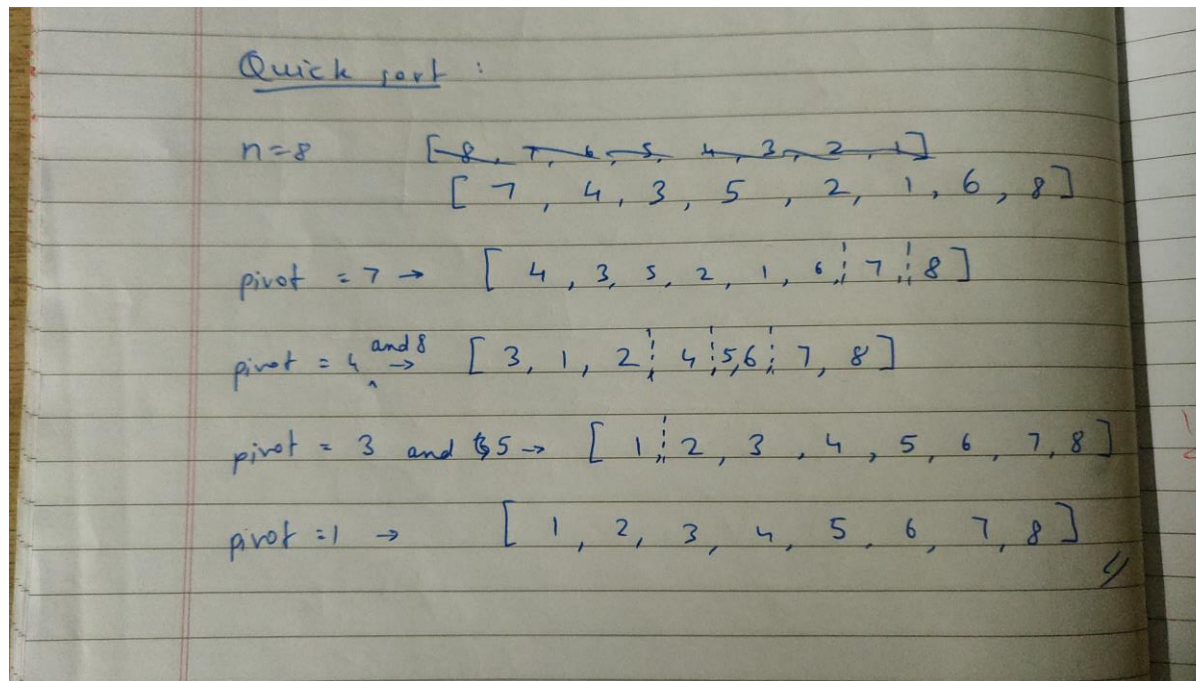 Quick sort :
n=8 [8, 7, 6, 5, 4, 3, 2, 1]
[ 7, 4, 3, 5, 2, 1, 6, 8]
pivot = 7 → [ 4, 3, 5, 2, 1, 6, 7, 8]
pivot = 4 and 8 → [ 3, 1, 2, 4, 5,6, 7, 8]
pivot = 3 and 5 → [ 1, 2, 3, 4, 5, 6, 7, 8]
pivot = 1 → [ 1, 2, 3, 4, 5, 6, 7, 8]